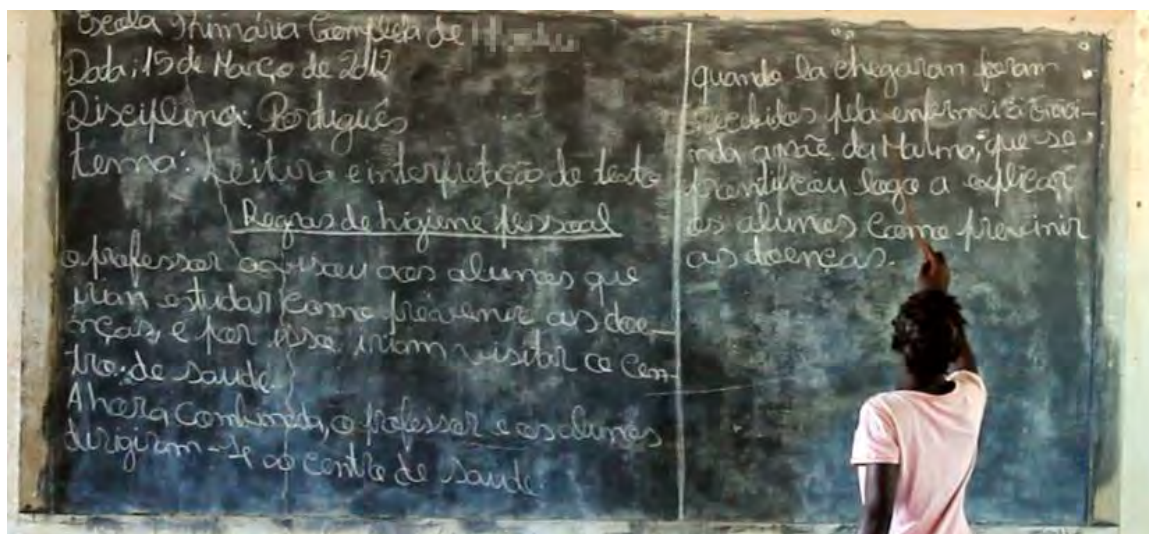 Escola Primária Completa de
Data: 15 de Março de 2012
Disciplina: Português
Tema: Leitura e interpretação de texto
Regras de higiene pessoal
o professor avisou aos alunos que
irian estudar como prevenir as doe-
nças, e por isso iriam visitar o cen-
tro de saude.
A hora combinada, o professor e os alunos
dirigiram-se ao centro de saude.
quando la chegaram foram
recebidos pela
a mãe da que se
prontificou logo a explicar
os alunos como previnir
as doenças.